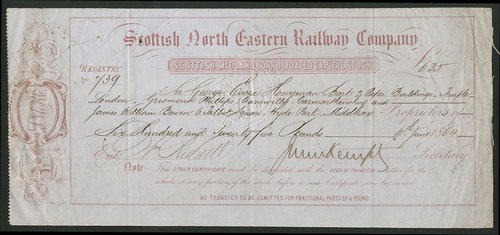 Scottish North Eastern Railway Company
SCOTTISH MIDLAND CONSOLIDATED CAPITAL STOCK
REGISTRY
£625
No 739
Sir George Essex Honyman Bart 2 Paper Buildings, Temple
London, Phillips, and
James William Bowen 6 Square Hyde Park Middlesex Proprietors of
Six Hundred and twenty five Pounds 6th June 1864
Entd Secretary
Note THIS STOCK CERTIFICATE must be deposited with the DEED OF TRANSFER whether for the
whole or any portion of the stock before a new Certificate can be issued
NO TRANSFER TO BE ADMITTED FOR FRACTIONAL PARTS OF A POUND